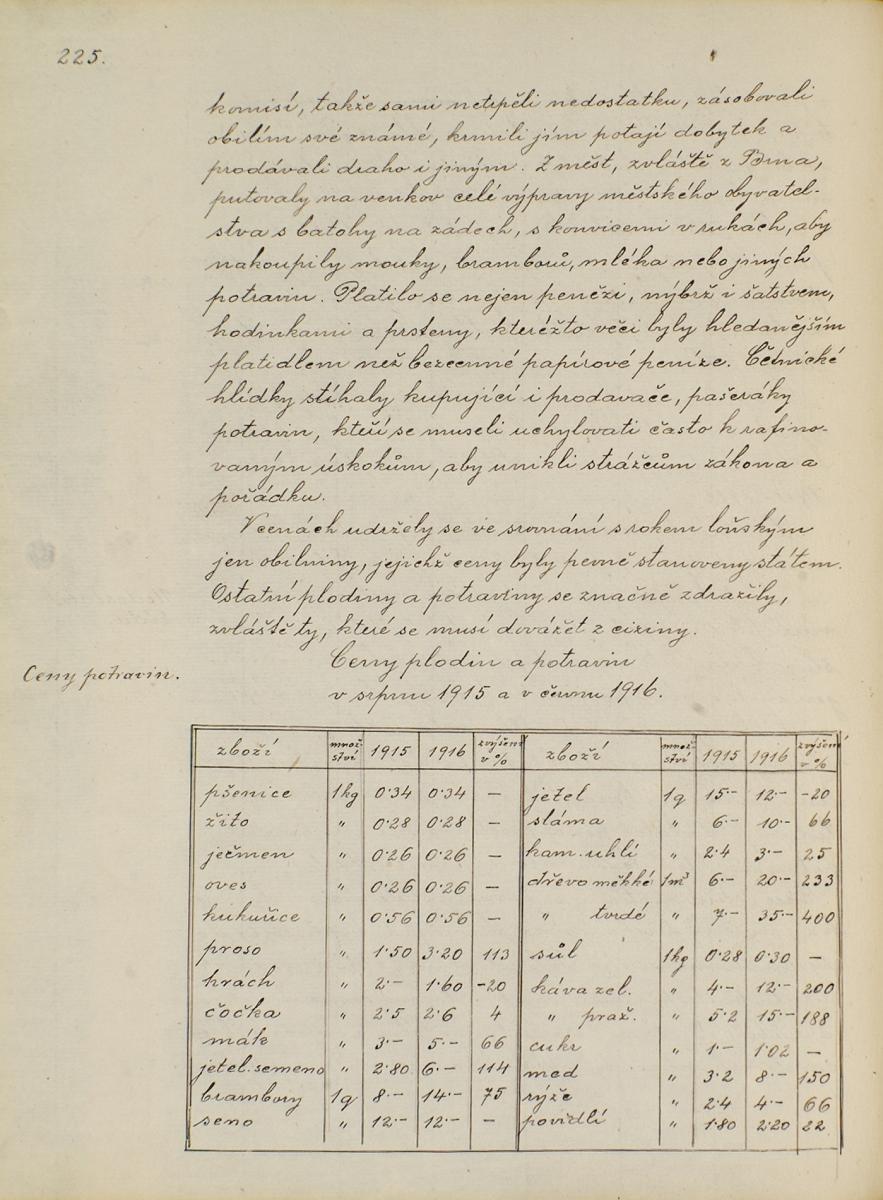 225.
komisí, takže sami netrpěli nedostatku, zásobovali
obilím své známé, krmili jím potají dobytek a
prodávali draho i jiným. Z měst, zvláště z Brna,
putovaly na venkov celé výpravy městského obyvatel-
stva s batohy na zádech, s konvicemi v rukách, aby
nakoupily mouky, bramborů, mléka nebo jiných
potravin. Platilo se nejen penězi, nýbrž i šatstvem,
hodinkami a prsteny, kteréžto věci byly hledanějším
platidlem než bezcenné papírové peníze. Četnické
hlídky stíhaly kupující i prodavače, pašeráky
potravin, kteří se museli uchylovati často k rafino-
vaným úskokům, aby unikli strážcům zákona a
pořádku.
V cenách udržely se ve srovnání s rokem loňským
jen obilniny, jejichž ceny byly pevně stanoveny státem.
Ostatní plodiny a potraviny se značně zdražily,
zvláště ty, které se musí dovážet z ciziny.
Ceny potravin.
Ceny plodin a potravin
v srpnu 1915 a v červnu 1916.
zboží množ-ství 1915 1916 zvýšení v % zboží množ-ství 1915 1916 zvýšení v %
pšenice 1kg 0·34 0·34 — jetel 1q 15·- 12·- -20
žito " 0·28 0·28 — sláma " 6·- 10·- 66
ječmen " 0·26 0·26 — kam. uhlí " 2·4 3·- 25
oves " 0·26 0·26 — dřevo měkké 1m³ 6·- 20·- 233
kukuřice " 0·56 0·56 — " tvrdé " 7·- 35·- 400
proso " 1·50 3·20 113 sůl 1kg 0·28 0·30 —
hrách " 2·- 1·60 -20 káva zel. " 4·- 12·- 200
čočka " 2·5 2·6 4 " praž. " 5·2 15·- 188
mák " 3·- 5·- 66 cukr " 1·- 1·02 —
jetel. semeno " 2·80 6·- 114 med " 3·2 8·- 150
brambory 1q 8·- 14·- 75 rýže " 2·4 4·- 66
seno " 12·- 12·- — povidlí " 1·80 2·20 22